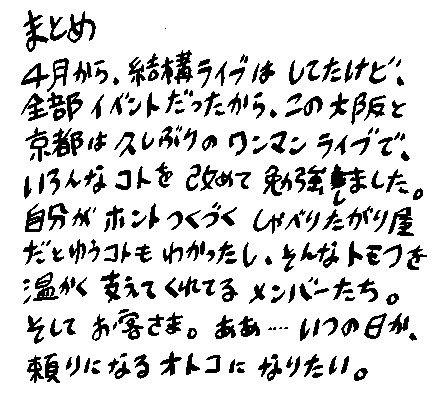 まとめ
4月から、結構ライブは してたけど、
全部 イベントだったから、この大阪と
京都は久しぶりの ワンマン ライブで、
いろんなコトを 改めて 勉強しました。
自分が ホント つくづく しゃべりたがり屋
だとゆうコトも わかったし、そんなトモフを
温かく 支えてくれてる メンバーたち。
そして お客さま。ああ…. いつの日か、
頼りになるオトコに なりたい。